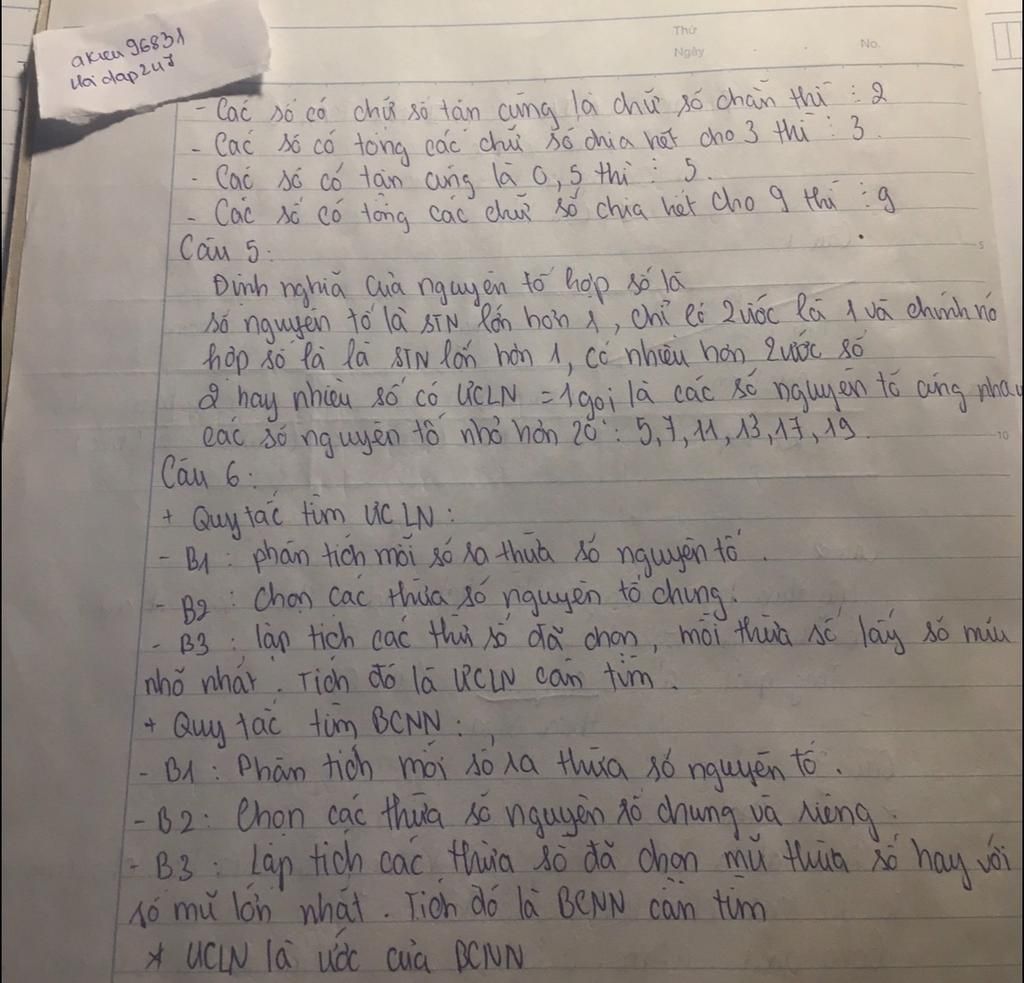 akieu96831
Hoidap247
Thứ
Ngày
No.
- Các số có chữ số tận cùng là chữ số chẵn thì ⋮ 2
- Các số có tổng các chữ số chia hết cho 3 thì ⋮ 3.
- Các số có tận cùng là 0, 5 thì ⋮ 5.
- Các số có tổng các chữ số chia hết cho 9 thì ⋮ 9
Câu 5:
5
Định nghiã của nguyên tố hợp số là
số nguyên tố là STN lớn hơn 1, chỉ có 2 ước là 1 và chính nó
hợp số là là STN lớn hơn 1, có nhiều hơn 2 ước số
2 hay nhiều số có ƯCLN = 1 gọi là các số nguyên tố cùng nhau
các số nguyên tố nhỏ hơn 20 : 5, 7, 11, 13, 17, 19.
10
Câu 6:
+ Quy tắc tìm ƯCLN:
- B1 : phân tích mỗi số ra thừa số nguyên tố.
- B2 : Chọn các thừa số nguyên tố chung.
- B3 : lập tích các thừ số đã chọn, mỗi thừa số lấy số mũ
nhỏ nhất. Tích đó là ƯCLN cần tìm.
+ Quy tắc tìm BCNN:
- B1 : Phân tích mỗi số ra thừa số nguyên tố.
- B2 : Chọn các thừa số nguyên số chung và riêng.
- B3 : Lập tích các thừa số đã chọn mũ thừa số hay với
số mũ lớn nhất. Tích đó là BCNN cần tìm
* ƯCLN là ước của BCNN